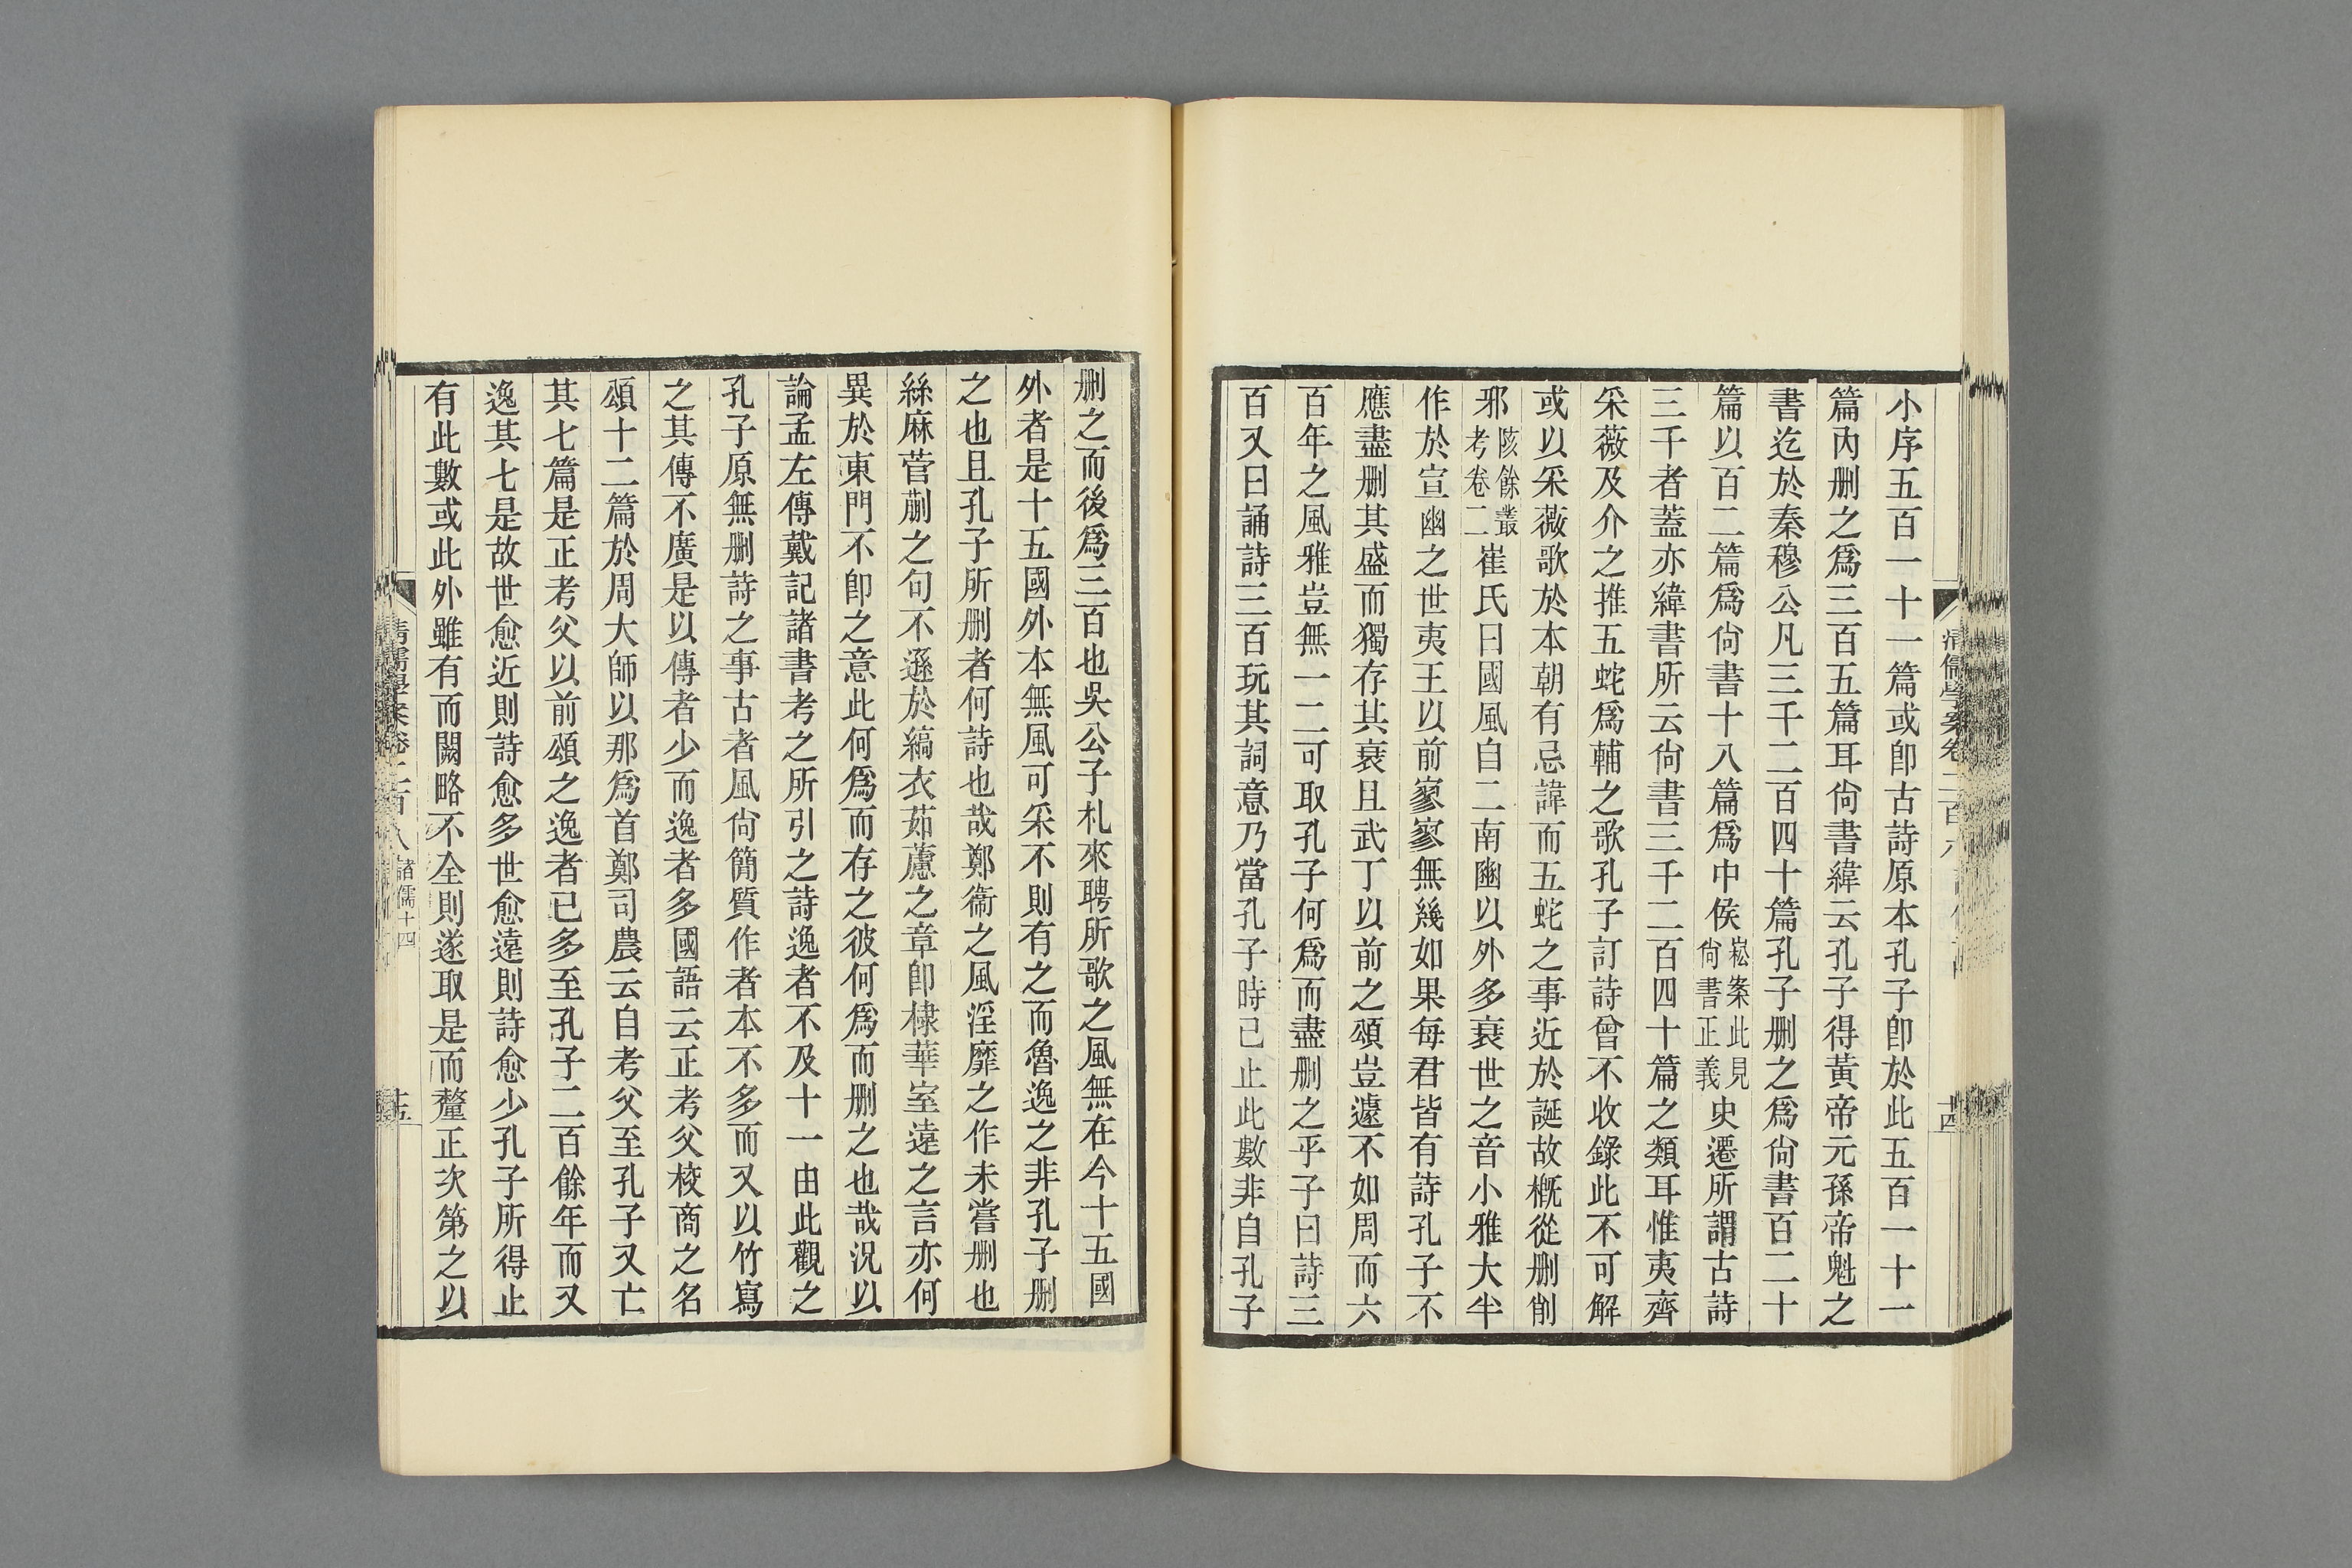 小序五百一十一篇或卽古詩原本孔子卽於此五百一十一
篇內刪之爲三百五篇耳尙書緯云孔子得黃帝元孫帝魁之
書迄於秦穆公凡三千二百四十篇孔子刪之爲尙書百二十
篇以百二篇爲尙書十八篇爲中侯崧案此見尙書正義史遷所謂古詩
三千者蓋亦緯書所云尙書三千二百四十篇之類耳惟夷齊
采薇及介之推五蛇爲輔之歌孔子訂詩曾不收錄此不可解
或以采薇歌於本朝有忌諱而五蛇之事近於誕故槪從刪削
邪陔餘叢考卷二崔氏曰國風自二南豳以外多衰世之音小雅大半
作於宣幽之世夷王以前寥寥無幾如果每君皆有詩孔子不
應盡刪其盛而獨存其衰且武丁以前之頌豈遽不如周而六
百年之風雅豈無一二可取孔子何爲而盡刪之乎子曰詩三
百又曰誦詩三百玩其詞意乃當孔子時已止此數非自孔子
刪之而後爲三百也吳公子札來聘所歌之風無在今十五國
外者是十五國外本無風可采不則有之而魯逸之非孔子刪
之也且孔子所刪者何詩也哉鄭衞之風淫靡之作未嘗刪也
絲麻菅蒯之句不遜於縞衣茹藘之章卽棣華室遠之言亦何
異於東門不卽之意此何爲而存之彼何爲而刪之也哉況以
論孟左傳戴記諸書考之所引之詩逸者不及十一由此觀之
孔子原無刪詩之事古者風尙簡質作者本不多而又以竹寫
之其傳不廣是以傳者少而逸者多國語云正考父校商之名
頌十二篇於周大師以那爲首鄭司農云自考父至孔子又亡
其七篇是正考父以前頌之逸者已多至孔子二百餘年而又
逸其七是故世愈近則詩愈多世愈遠則詩愈少孔子所得止
有此數或此外雖有而闕略不全則遂取是而釐正次第之以
清儒學案卷二百八 諸儒十四
十五
清儒學案卷二百
十四